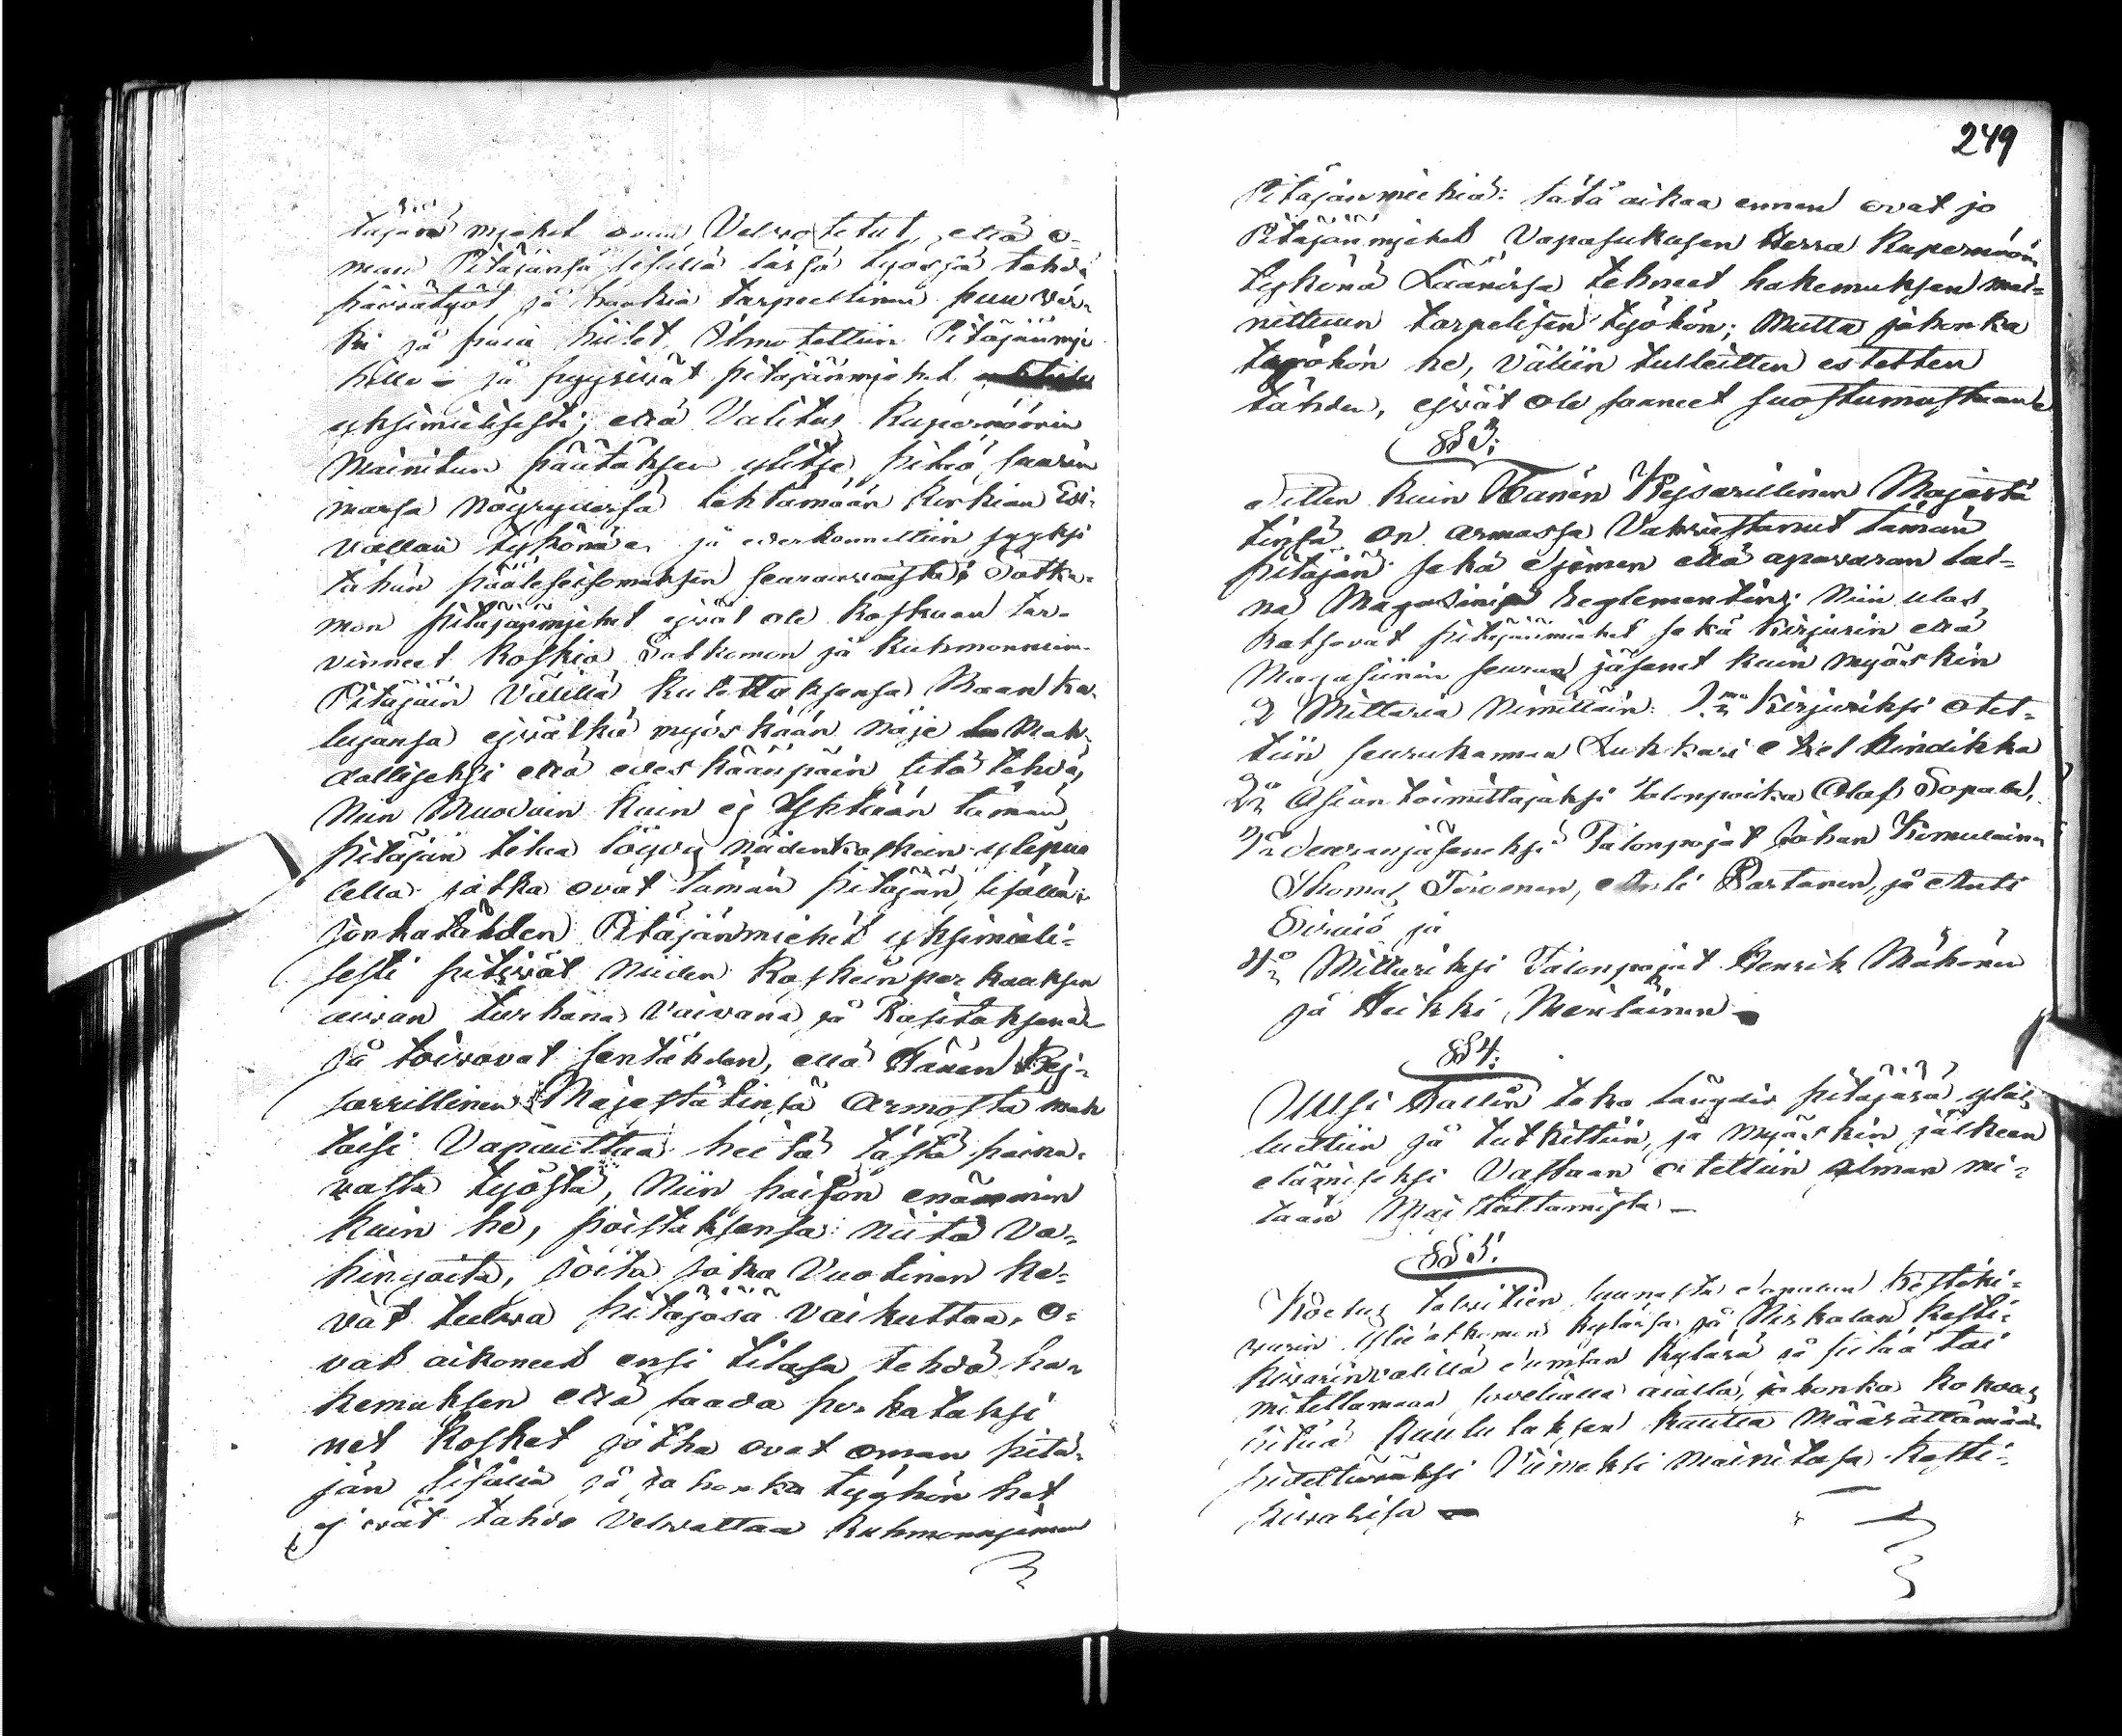 täjän mjehet ovat Velvotetut, että o-
man Pitäjänsä sisällä täsä työsjä tehdä
päivätyöt ja hankia tarpeellinen puu vär-
ki ja puu hiilet, Ilmotettiin Pitäjänmje
hille – ja pyysivät pitäjänmjehet
yksimielisesti; että Valitus Kupernöörin
Mainitun päätöksen ylitse pitää suurim
masa nöyrydesä tehtämään Korkian Esi-
vallan tykönä ja edeskannettiin syyksi
tähän päälleseisomuksen seuraavaista; Sotka-
mon pitäjänmjehet ejvät ole Koskaan tar-
vinneet Koskia Sotkamon ja Kuhmonniemen
Pitäjäin Välillä Kulettaksensa Maan ka-
lujansa ejvätkä myöskään näje Mah-
dolliseksi että edeskäänpäin sitä tehdä,
Niin Muodoin Kuin ej Yhtään tämän
pitäjän tilaa löydy näiden koskein yläpuo
lella jotka ovat tämän pitäjän sisällä;
jonkatähden Pitäjänmiehet yksimieli-
sesti pitävät Niiden Koskein perkauksen
aivan turhana Vaivana ja Rasituksena
ja toivovat sentähden, että Hänen Kej-
sarillinen Majestätinsä Armosta mah
taisi Vapauttaa heitä tästä paina-
vasta työstä, Niin paljon enämmin
kuin he, poistaksensa niitä Va-
hingoita, joita joka Vuotinen ke-
vät tulva pitäjäsä vaikuttaa, o-
vat aikoneet ensi tilasa tehdä ha-
kemuksen että saada perkatuksi
net Kosket jotka ovat oman pitä-
jän sisällä ja johonka työhön het
ejvät tahdo Velvoittaa Kuhmonnjemen
249
Pitäjänmiehiä: tätä aikaa ennen ovat jo
Pitäjänmjehet Vapasukusen Herra Kupernöörin
tykönä Läänisä tehneet hakemuksen mai-
nittuun tarpelisen työhön; Mutta johonka
työhön he, väliin tulleitten estetten
tähden, ejvät ole saaneet suostumustaan
§ 3:
Sitten kuin Hänen Kejsarillinen Majestä
tinsä on armossa Vahvistanut tämän
pitäjän sekä sjemen että apuvaran lai-
na Magasinin Reglementin; Niin ulos
katsovat pitäjänmiehet sekä Kirjurin että
Magasiinin seuran jäsenet kuin myöskin
2 Mittaria Nimittäin: 1mo Kirjuriksi otet-
tiin seurakunnan Lukkari Axel Kindikka
2o Asian toimittajaksi talonpoika Olof Sopala,
3o Seuranjäseneksi Talonpojat Johan Kemulainen
Thomas Toivonen, Anti Partanen, ja Anti
Sirviö ja
4o Mittariksi Talonpojat Henrik Mähönen
ja Heikki Meriläinen
§ 4:
Uusi Hallin tako läugdis pitäjäsä ylös
luettiin ja tutkittiin, ja myöskin jälkeen
elämiseksi Vastaan otettiin ilman mi-
tään Muistuttamista –
§ 5:
Koetus talvitien kestiki-
varin kyläsä ja Niskalan kesti-
kivarin välillä kyläsä ja pitää toi
mitettamaan soveliaalla ajalla, johonka kokous
pitää Kuulutuksen kautta määrättämän
pidettäväksi Viimeksi mainitusa Kesti-
kivarisa –